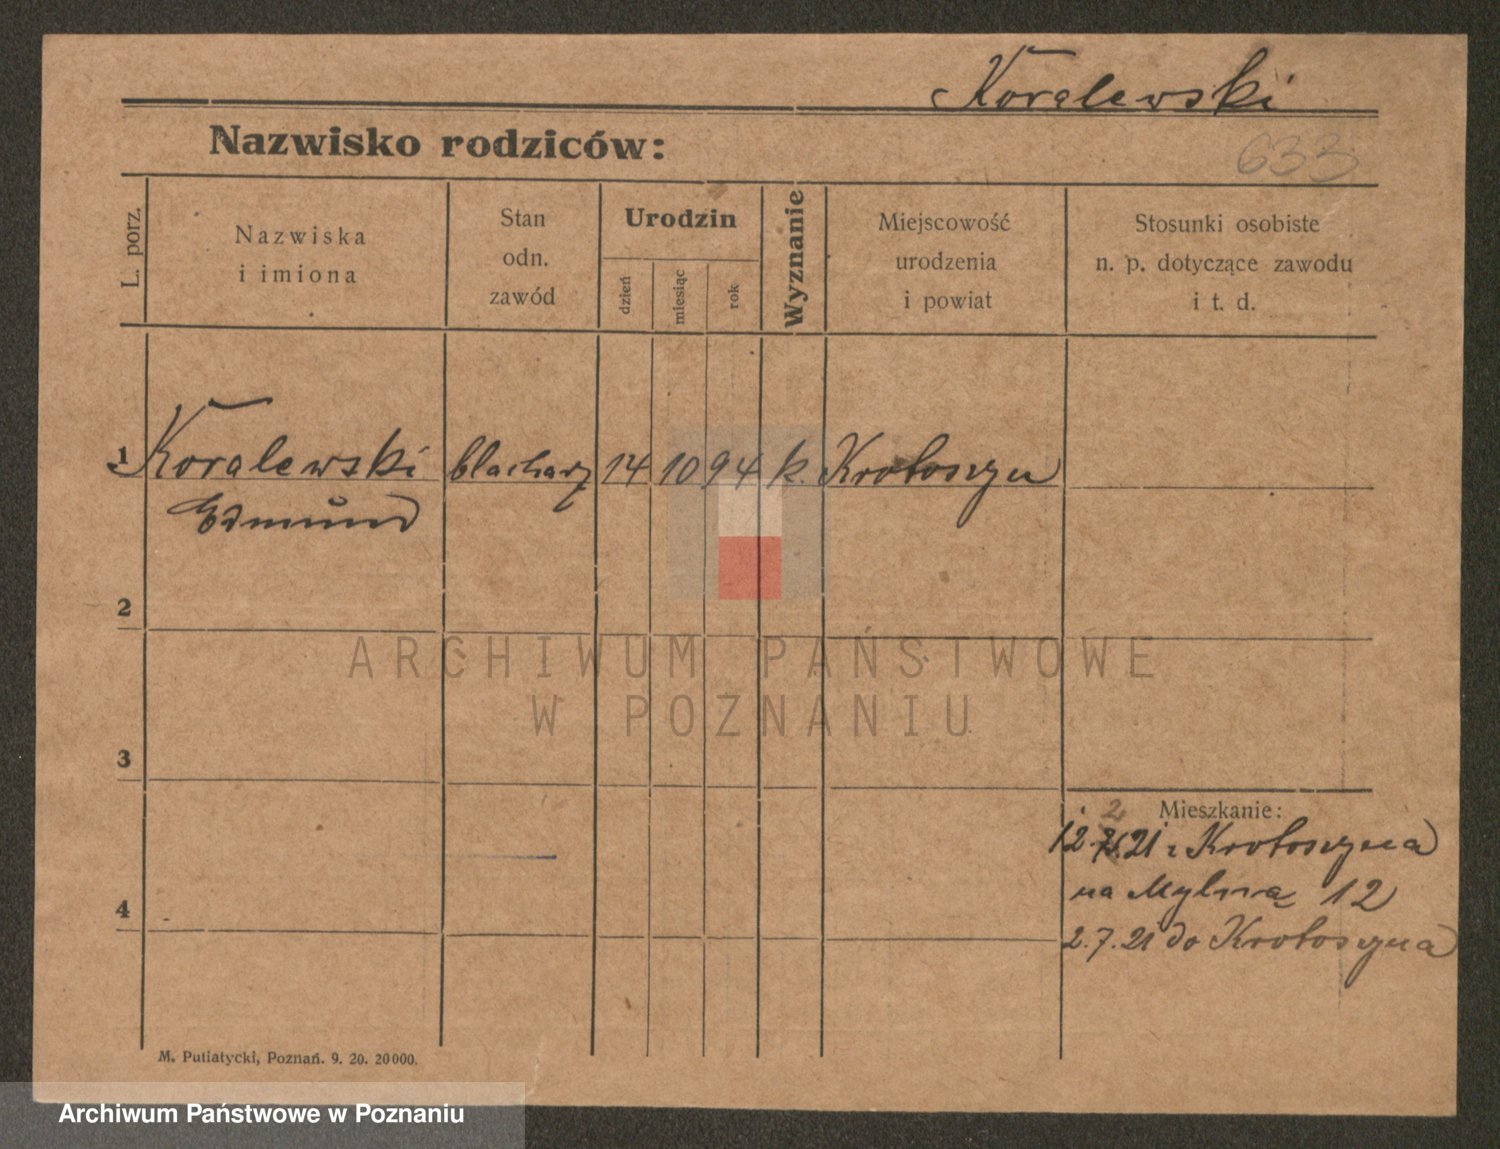 Koralewski
Nazwisko rodziców:
633
L. porz.
Nazwiska
i imiona
Stan
odn.
zawód
Urodzin
dzień
miesiąc
rok
Wyznanie
Miejscowość
urodzenia
i powiat
Stosunki osobiste
n. p. dotyczące zawodu
i t. d.
1 Koralewski blacharz 14 10 94 k. Krotoszyn
Edmund
2
ARCHIWUM PAŃSTWOWE
W POZNANIU
3
Mieszkanie:
2
12. 21 z Krotoszyna
na Mylną 12
4
2.7.21 do Krotoszyna
M. Putiatycki, Poznań. 9. 20. 20000.
Archiwum Państwowe w Poznaniu